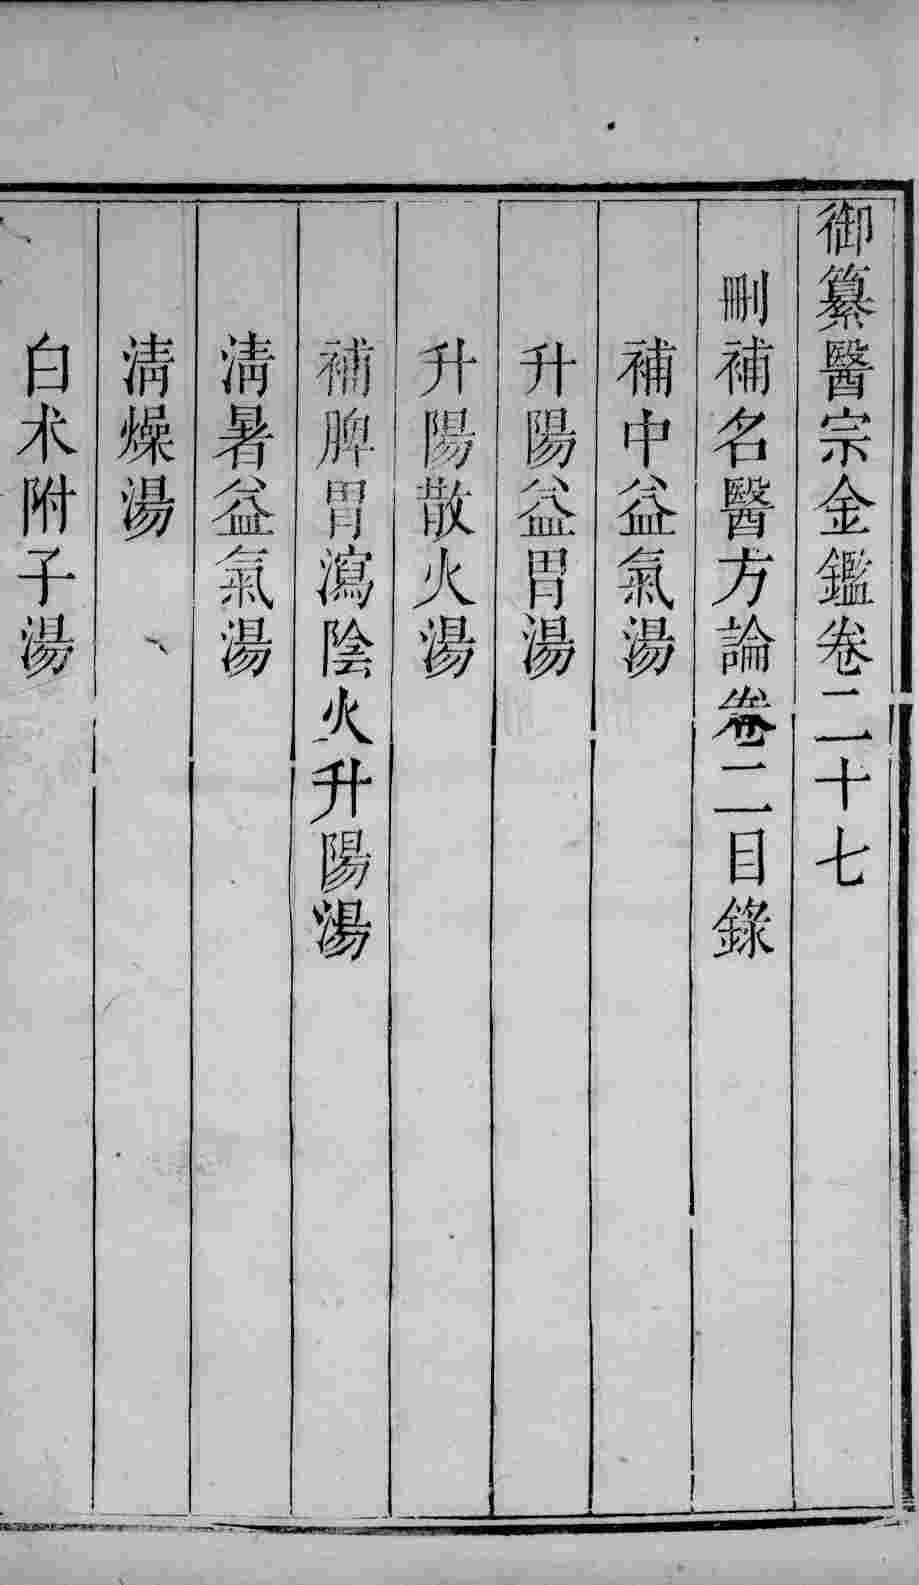 御纂醫宗金鑑卷二十七
刪補名醫方論卷二目錄
補中益氣湯
升陽益胃湯
升陽散火湯
補脾胃瀉陰火升陽湯
淸暑益氣湯
淸燥湯
白术附子湯